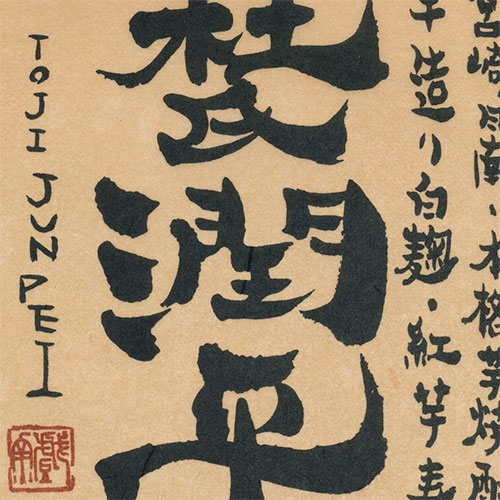 宮崎・日南・本格芋焼酎
手造り白麹・紅芋
杜氏潤平
TOJI JUNPEI